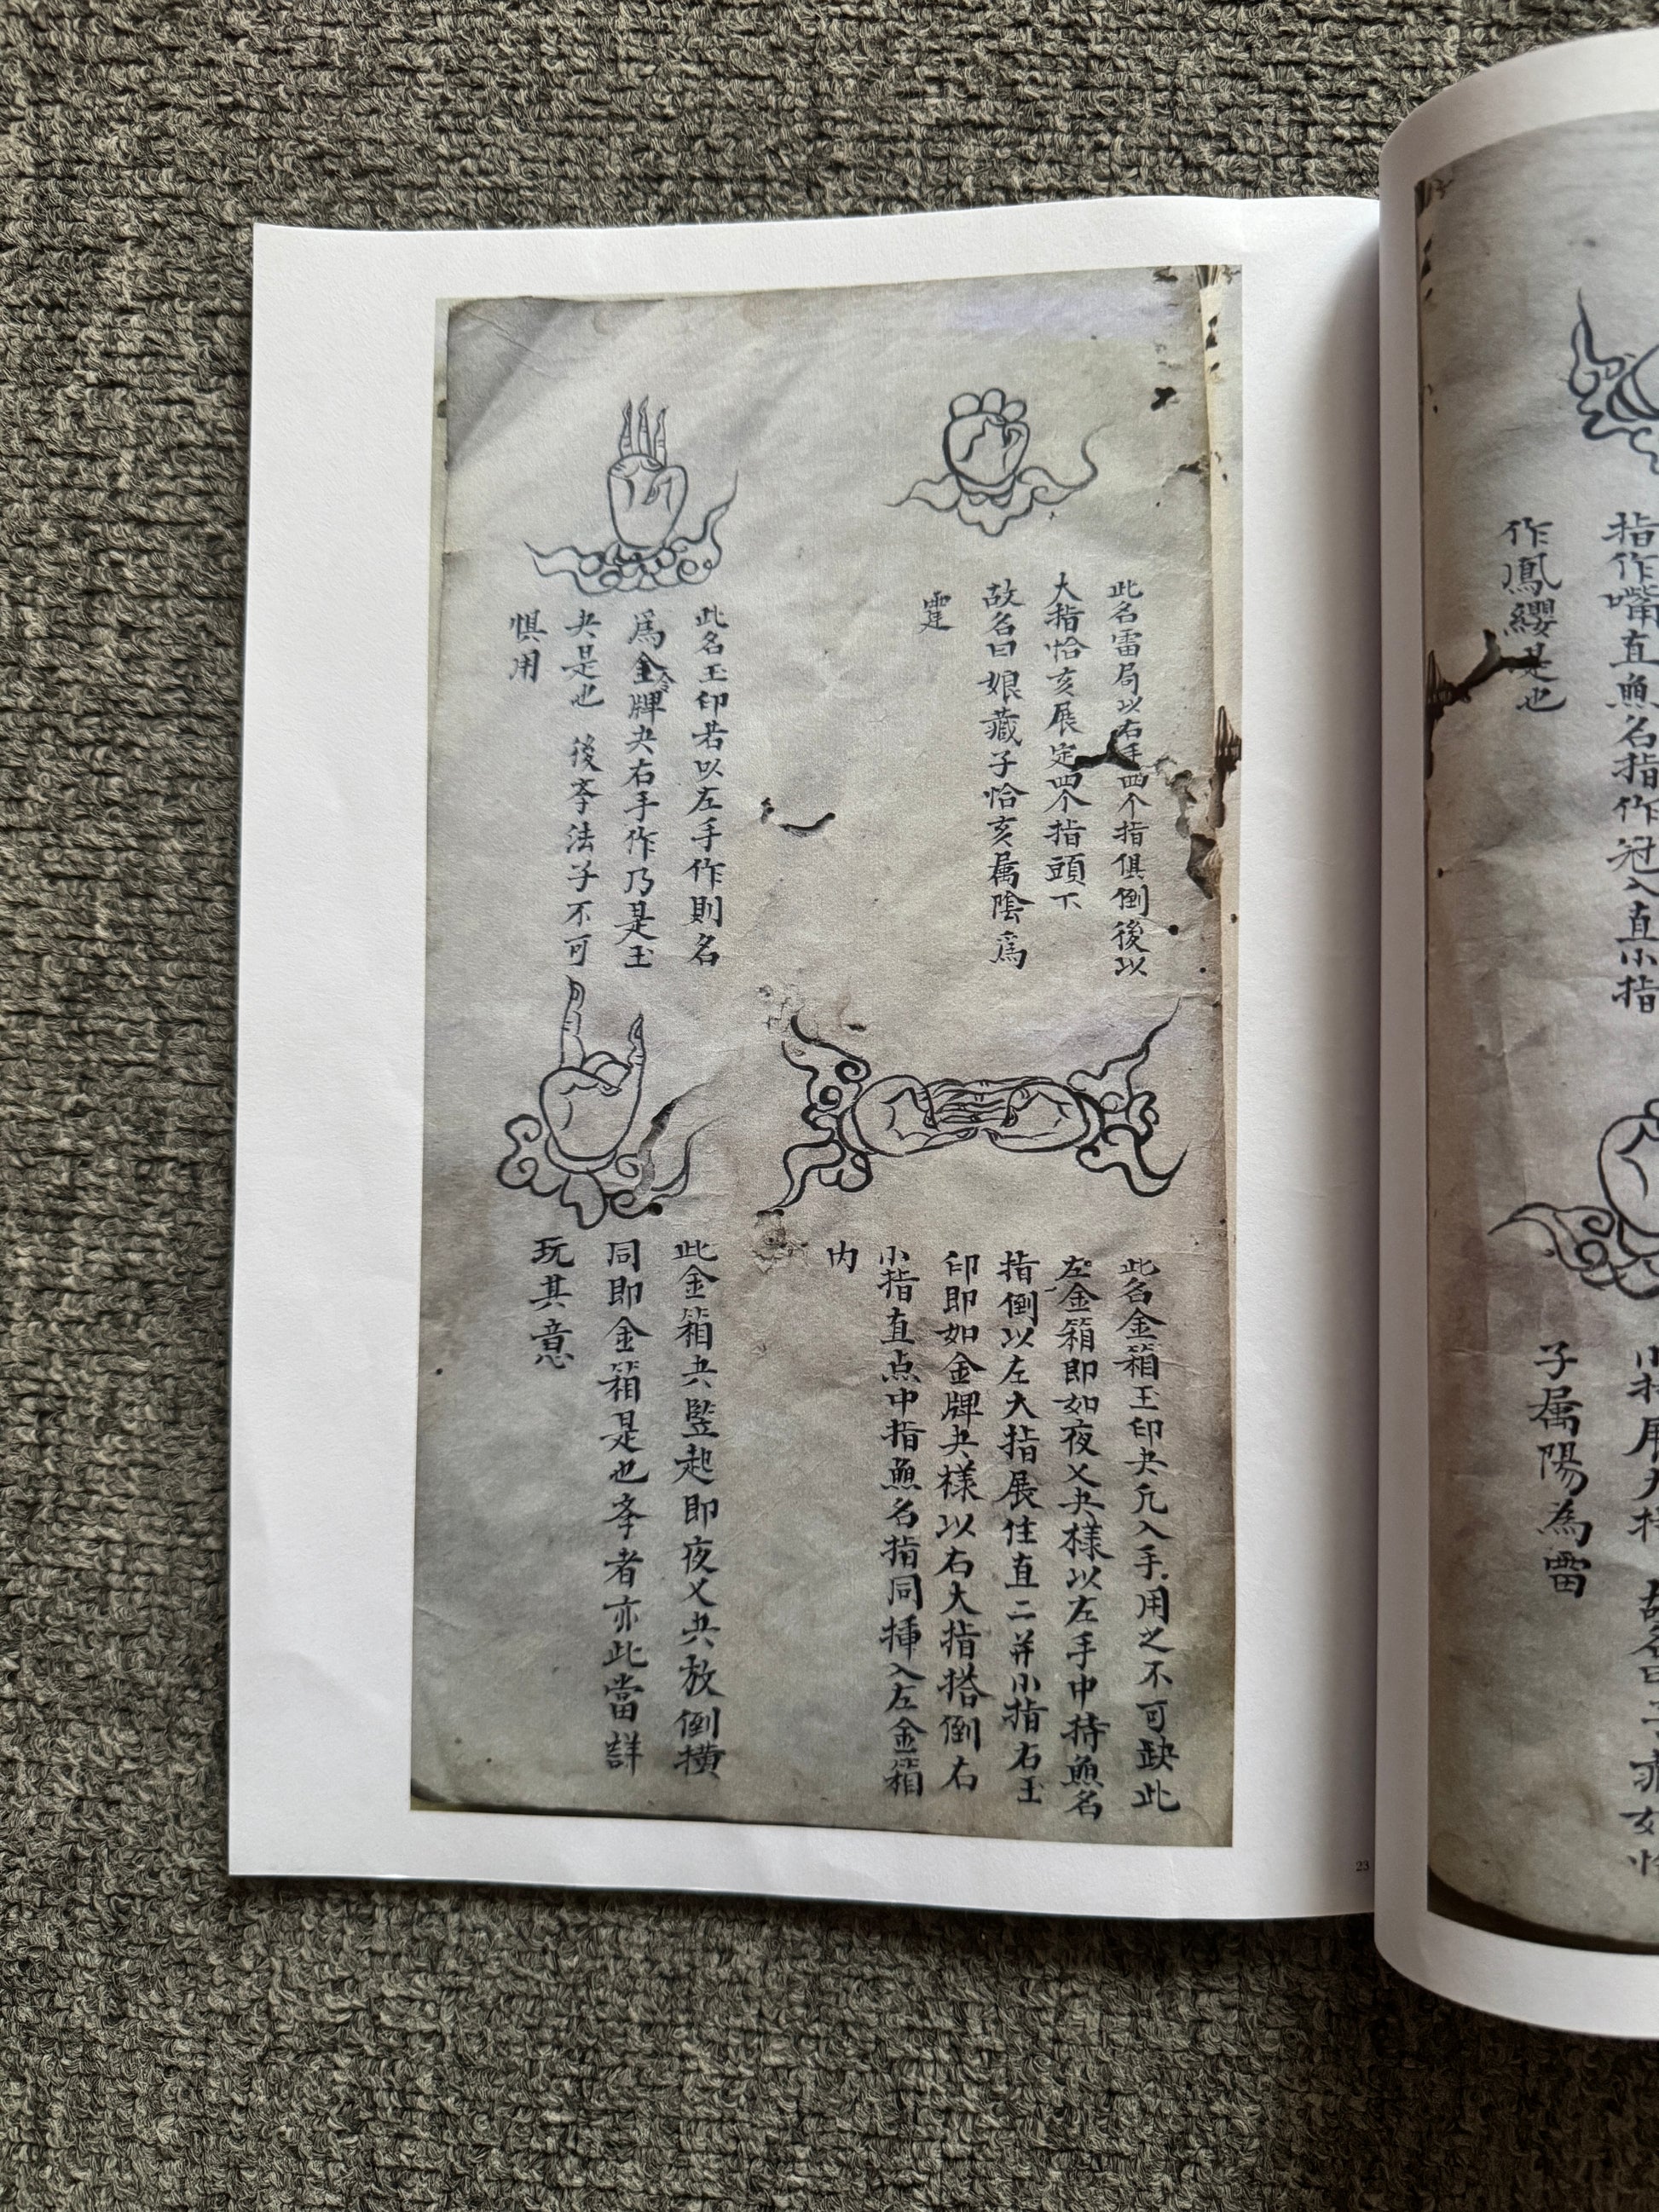 此名雷局以右手四个指俱倒後以
大指恰亥展定四个指頭下
故名曰娘藏子恰亥属陰爲
霆
此名玉印若以左手作則名
爲金牌夬右手作乃是玉
夬是也 後斈法子不可
惧用
此名金箱玉印夬凢入手用之不可缺此
左金箱即如夜乂夬樣以左手中持魚名
指倒以左大指展住直二并小指右玉
印即如金牌夬樣以右大指搭倒右
小指直点中指魚名指同揷入左金箱
内
此金箱夬竪起即夜乂夬放倒横
同即金箱是也斈者亦此當詳
玩其意
指作嘴直魚名指作冠入直小指
作鳳纓是也
子属陽為雷
23